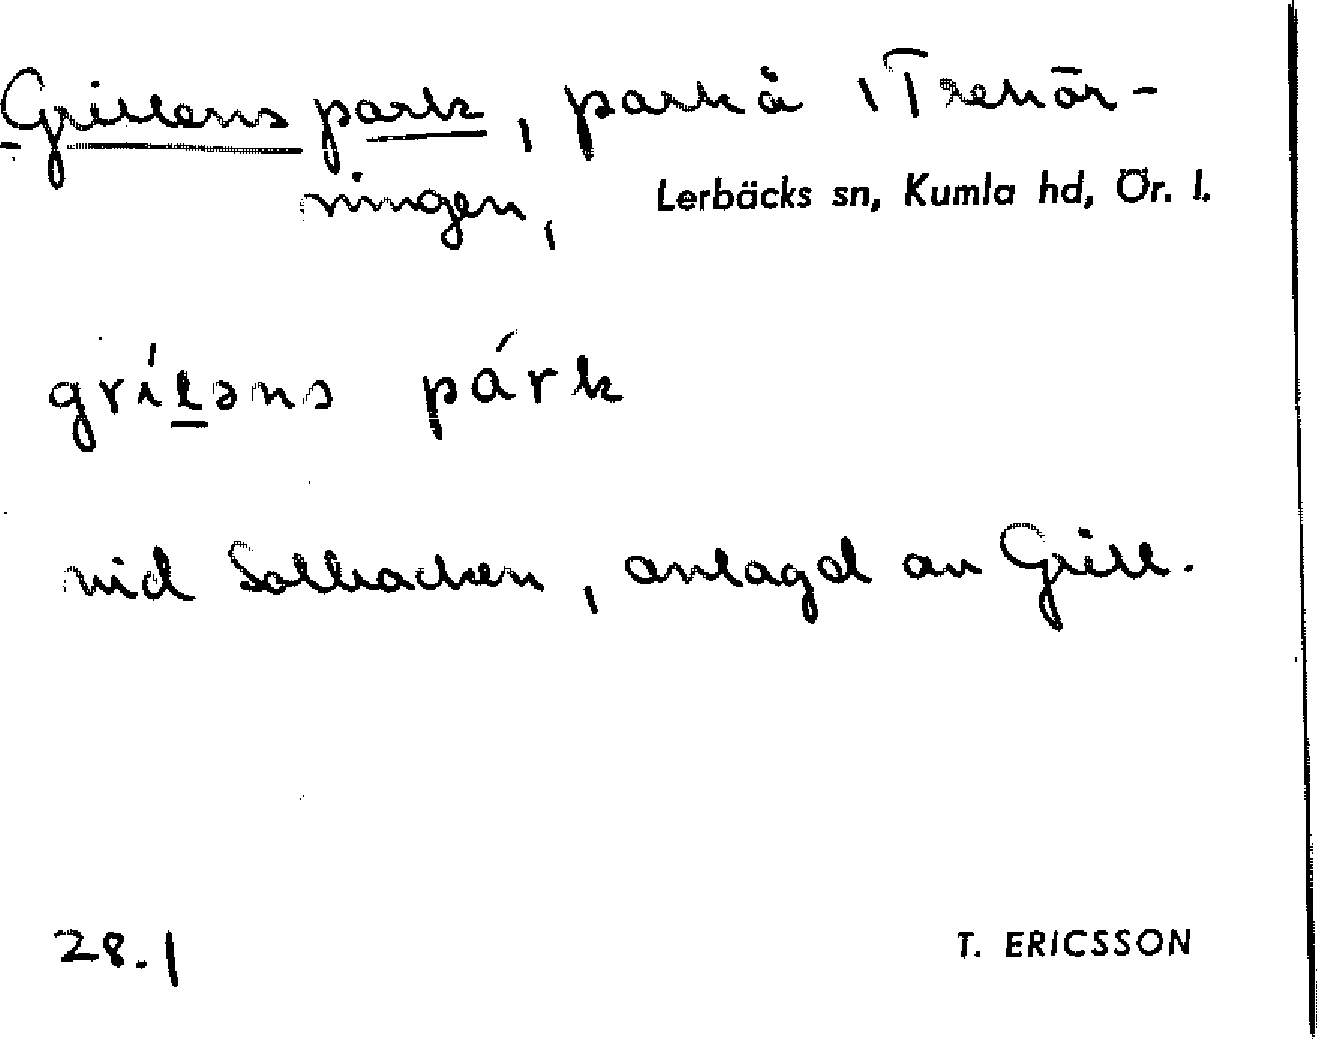 Grillens park, park å Trehör-
ningen, Lerbäcks sn, Kumla hd, Ör. l.
grílens párk
vid Solbacken, anlagd av Grill.
28.1
T. ERICSSON